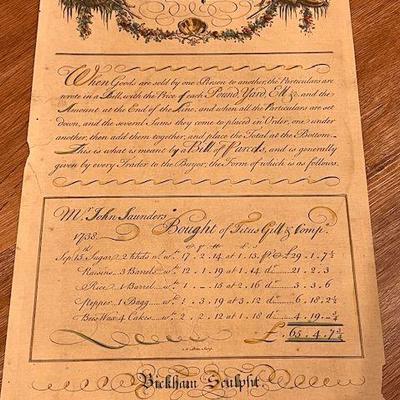 When Goods are sold by one Person to another, the Particulars are
wrote in a Bill, with the Price of each Pound Yard Ell &c. and the
Amount at the End of the Line, and when all the Particulars are set
Down, and the several Sums they come to placed in Order, one under
another, then add them together, and place the Total at the Bottom.
This is what is meant by a Bill of Parcels, and is generally
given by every Trader to the Buyer, the Form of which is as follows.
Mr. John Saunders
1738. Bought of Titus Gill & Comp.
Sep. 15 Sugar 2 hhds wt. 17 . 2 . 14 at 1 . 13 . £ 29 . 1 . 7½
Raisins 3 Barrels wt. 12 . 1 . 19 at 1 . 14 d 21 . 2 . 3
Rice 1 Barrel wt. 1 . 15 at 2 . 16 d 3 . 3 . 6
Pepper 1 Bagg wt. 1 . 3 . 19 at 3 . 12 d 6 . 18 . 2½
Bees Wax 4 Cakes wt. 2 . 2 . 14 at 1 . 18 d 4 . 19
£ 65 . 4 . 7
Bickham Sculpsit.